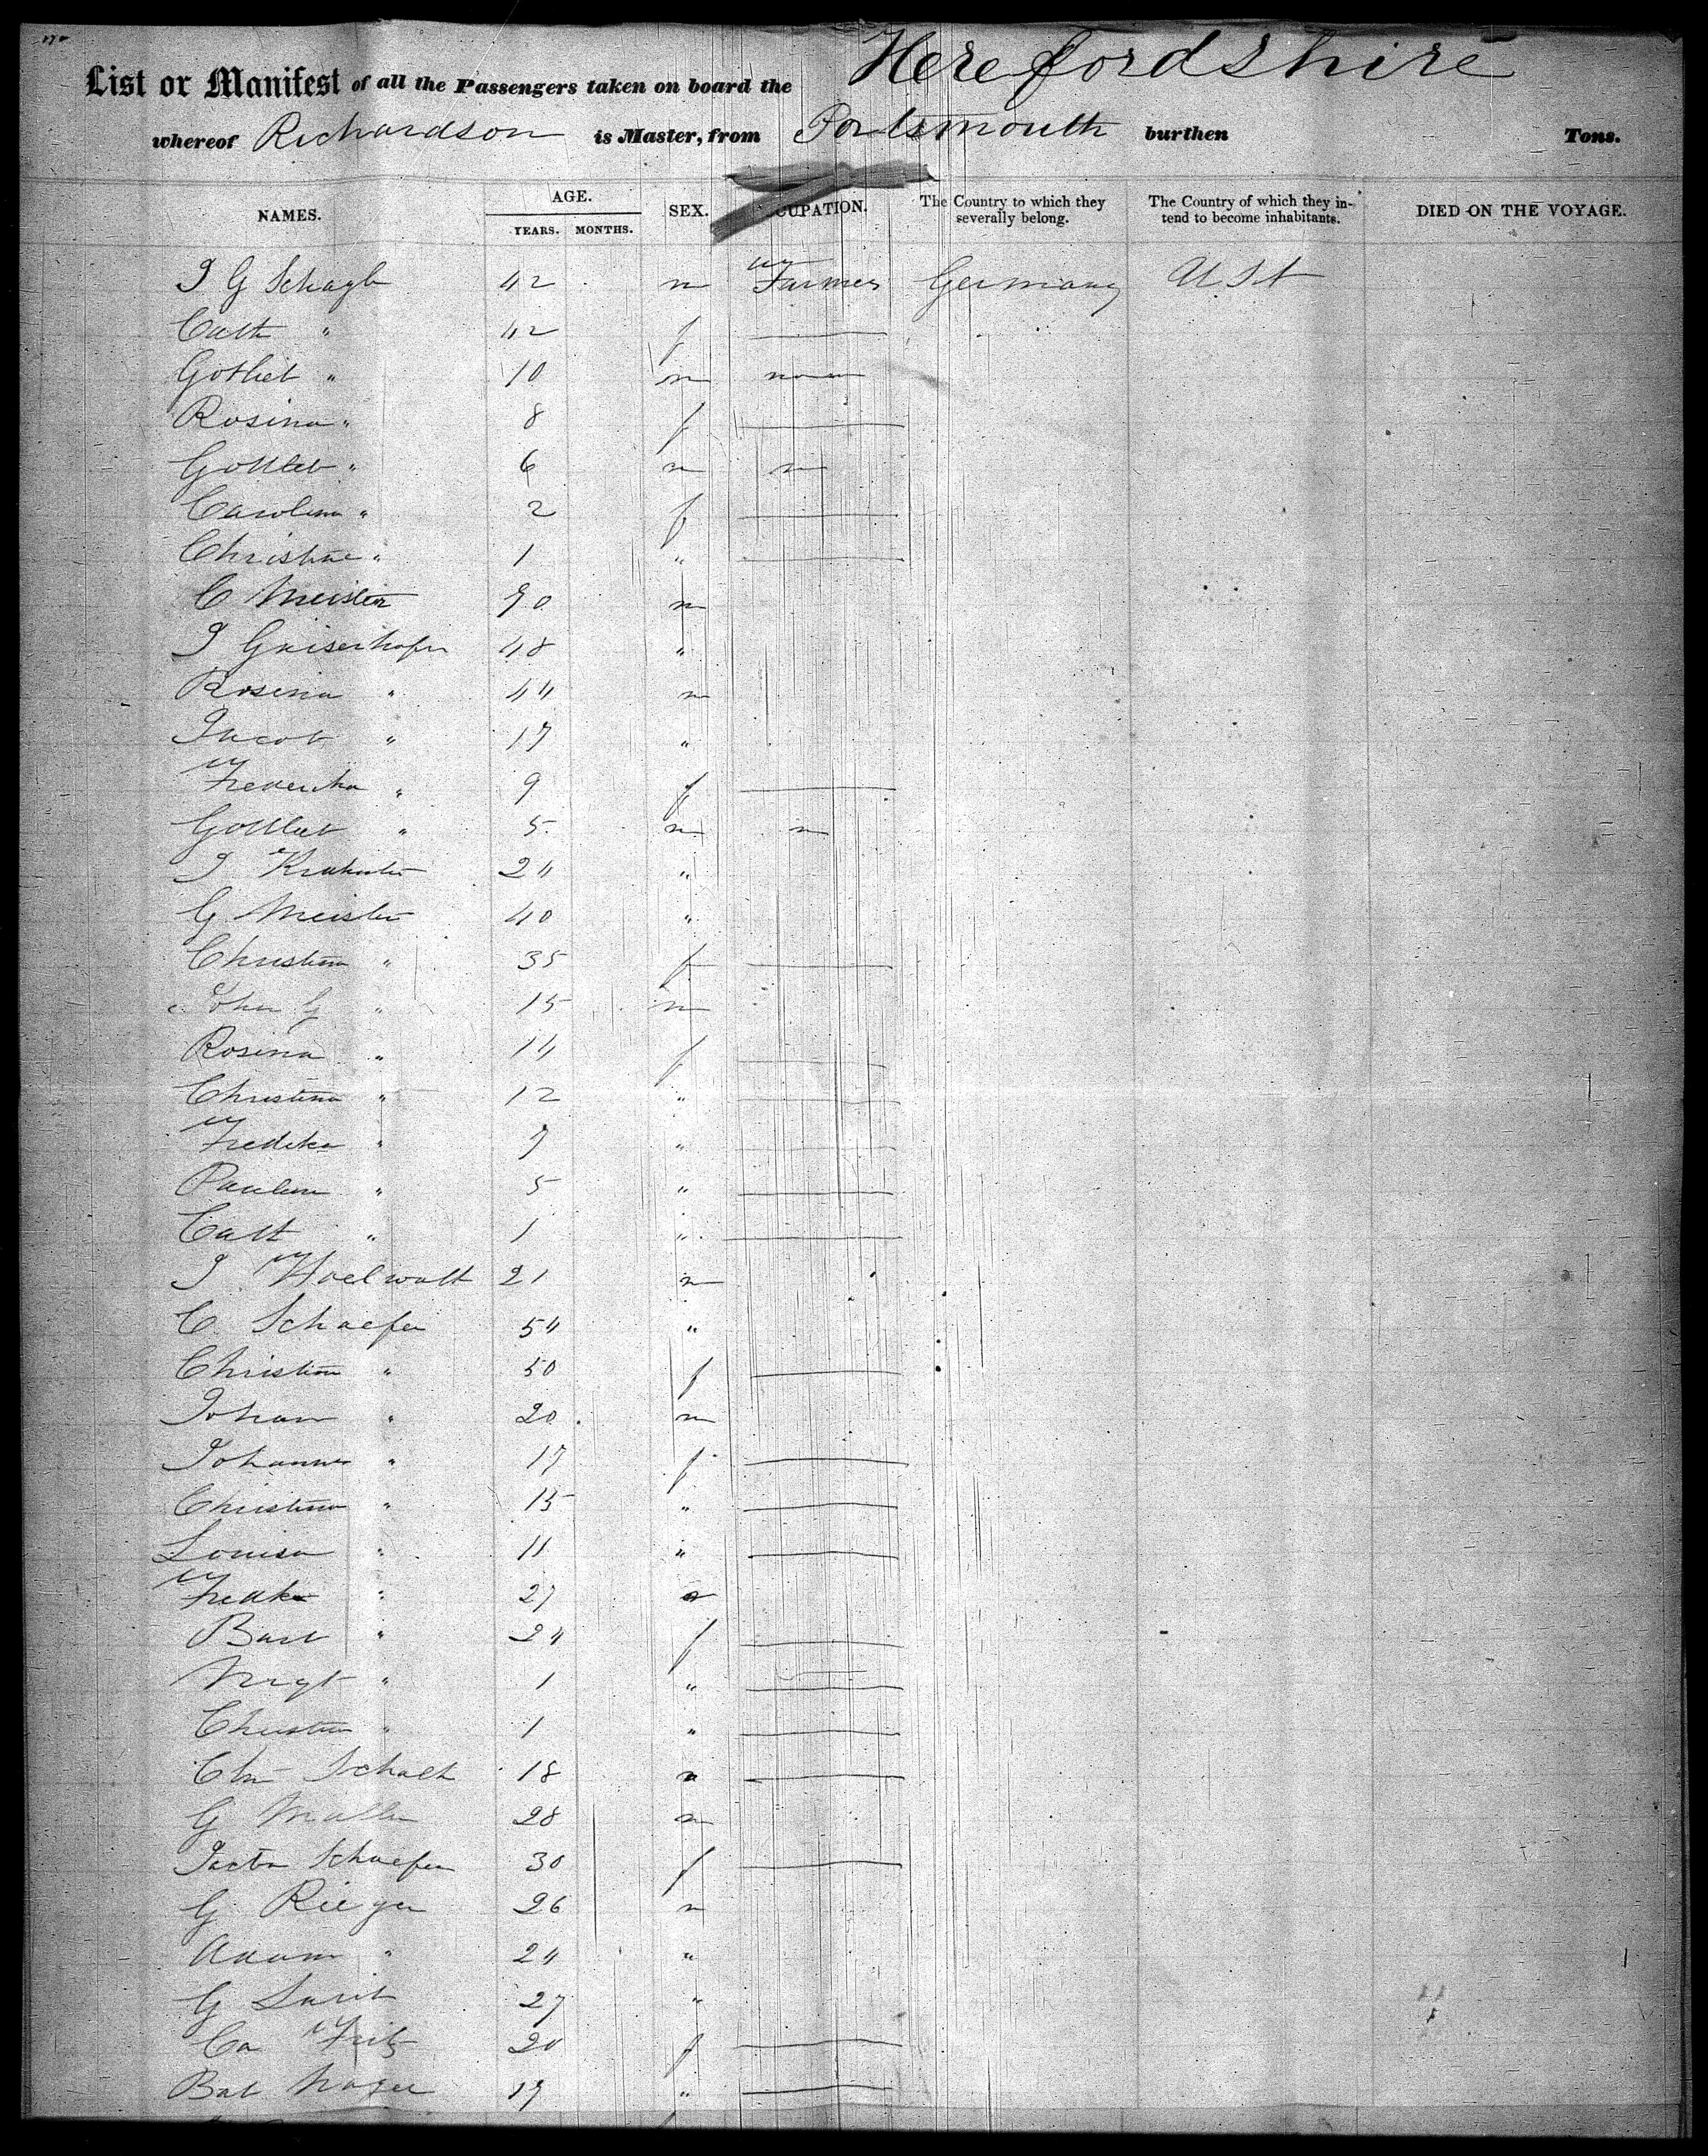 List or Manifest of all the Passengers taken on board the Herefordshire
whereof Richardson is Master, from Portsmouth burthen Tons.
NAMES. AGE. YEARS. MONTHS. SEX. OCCUPATION. The Country to which they severally belong. The Country of which they intend to become inhabitants. DIED ON THE VOYAGE.
J G 42 m Farmer Germany U St
Cath " 42 f
Gotlieb " 10 m
Rosina " 8 f
Gottlieb " 6 m
Carolina " 2 f
Christine " 1 "
C Meister 70 m
J Geiserhofer 48 "
Rosina " 44 m
Jacob " 17 "
Frederika " 9 f
Gottlieb " 5 m
J 24 "
G Meister 40 "
Christina " 35 f
John G " 15 m
Rosina " 14 f
Christina " 12 "
Fredika " 7 "
Paulina " 5 "
Cath " 1 "
J 21 m
C. Schaefer 54 "
Christina " 50 f
Johan " 20 m
Johanna " 17 f
Christina " 15 "
Louisa " 11 "
Fredk " 27
Barb " 24 f
Margt " 1 "
Christina " 1 "
Chr 18
G Muller 28 m
Schaefer 30 f
G Rieger 26 m
Adam " 24 "
G 27 "
Ca Fritz 20 f
Bab 17 "